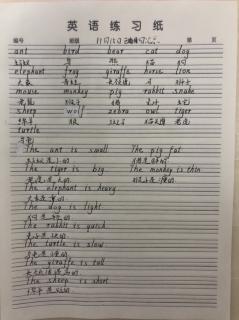 英语练习纸
编号 班级 11月15日 第 页
ant bird bear cat dog
蚂蚁 鸟 熊 猫 狗
elephant frog giraffe horse lion
大象 青蛙 长颈鹿 马 狮子
mouse monkey pig rabbit snake
老鼠 猴子 猪 兔子 蛇
sheep wolf zebra owl tiger
绵羊 狼 斑马 猫头鹰 老虎
turtle
乌龟
The ant is small The pig fat
蚂蚁是小的
The tiger is big The monkey is thin
老虎是大的 猴子是瘦的
The elephant is heavy
大象是重的
The dog is light
狗是轻的
The rabbit is quick
兔子是快的
The turtle is slow
乌龟是慢的
The giraffe is tall
长颈鹿是高的
The sheep is short
绵羊是矮的